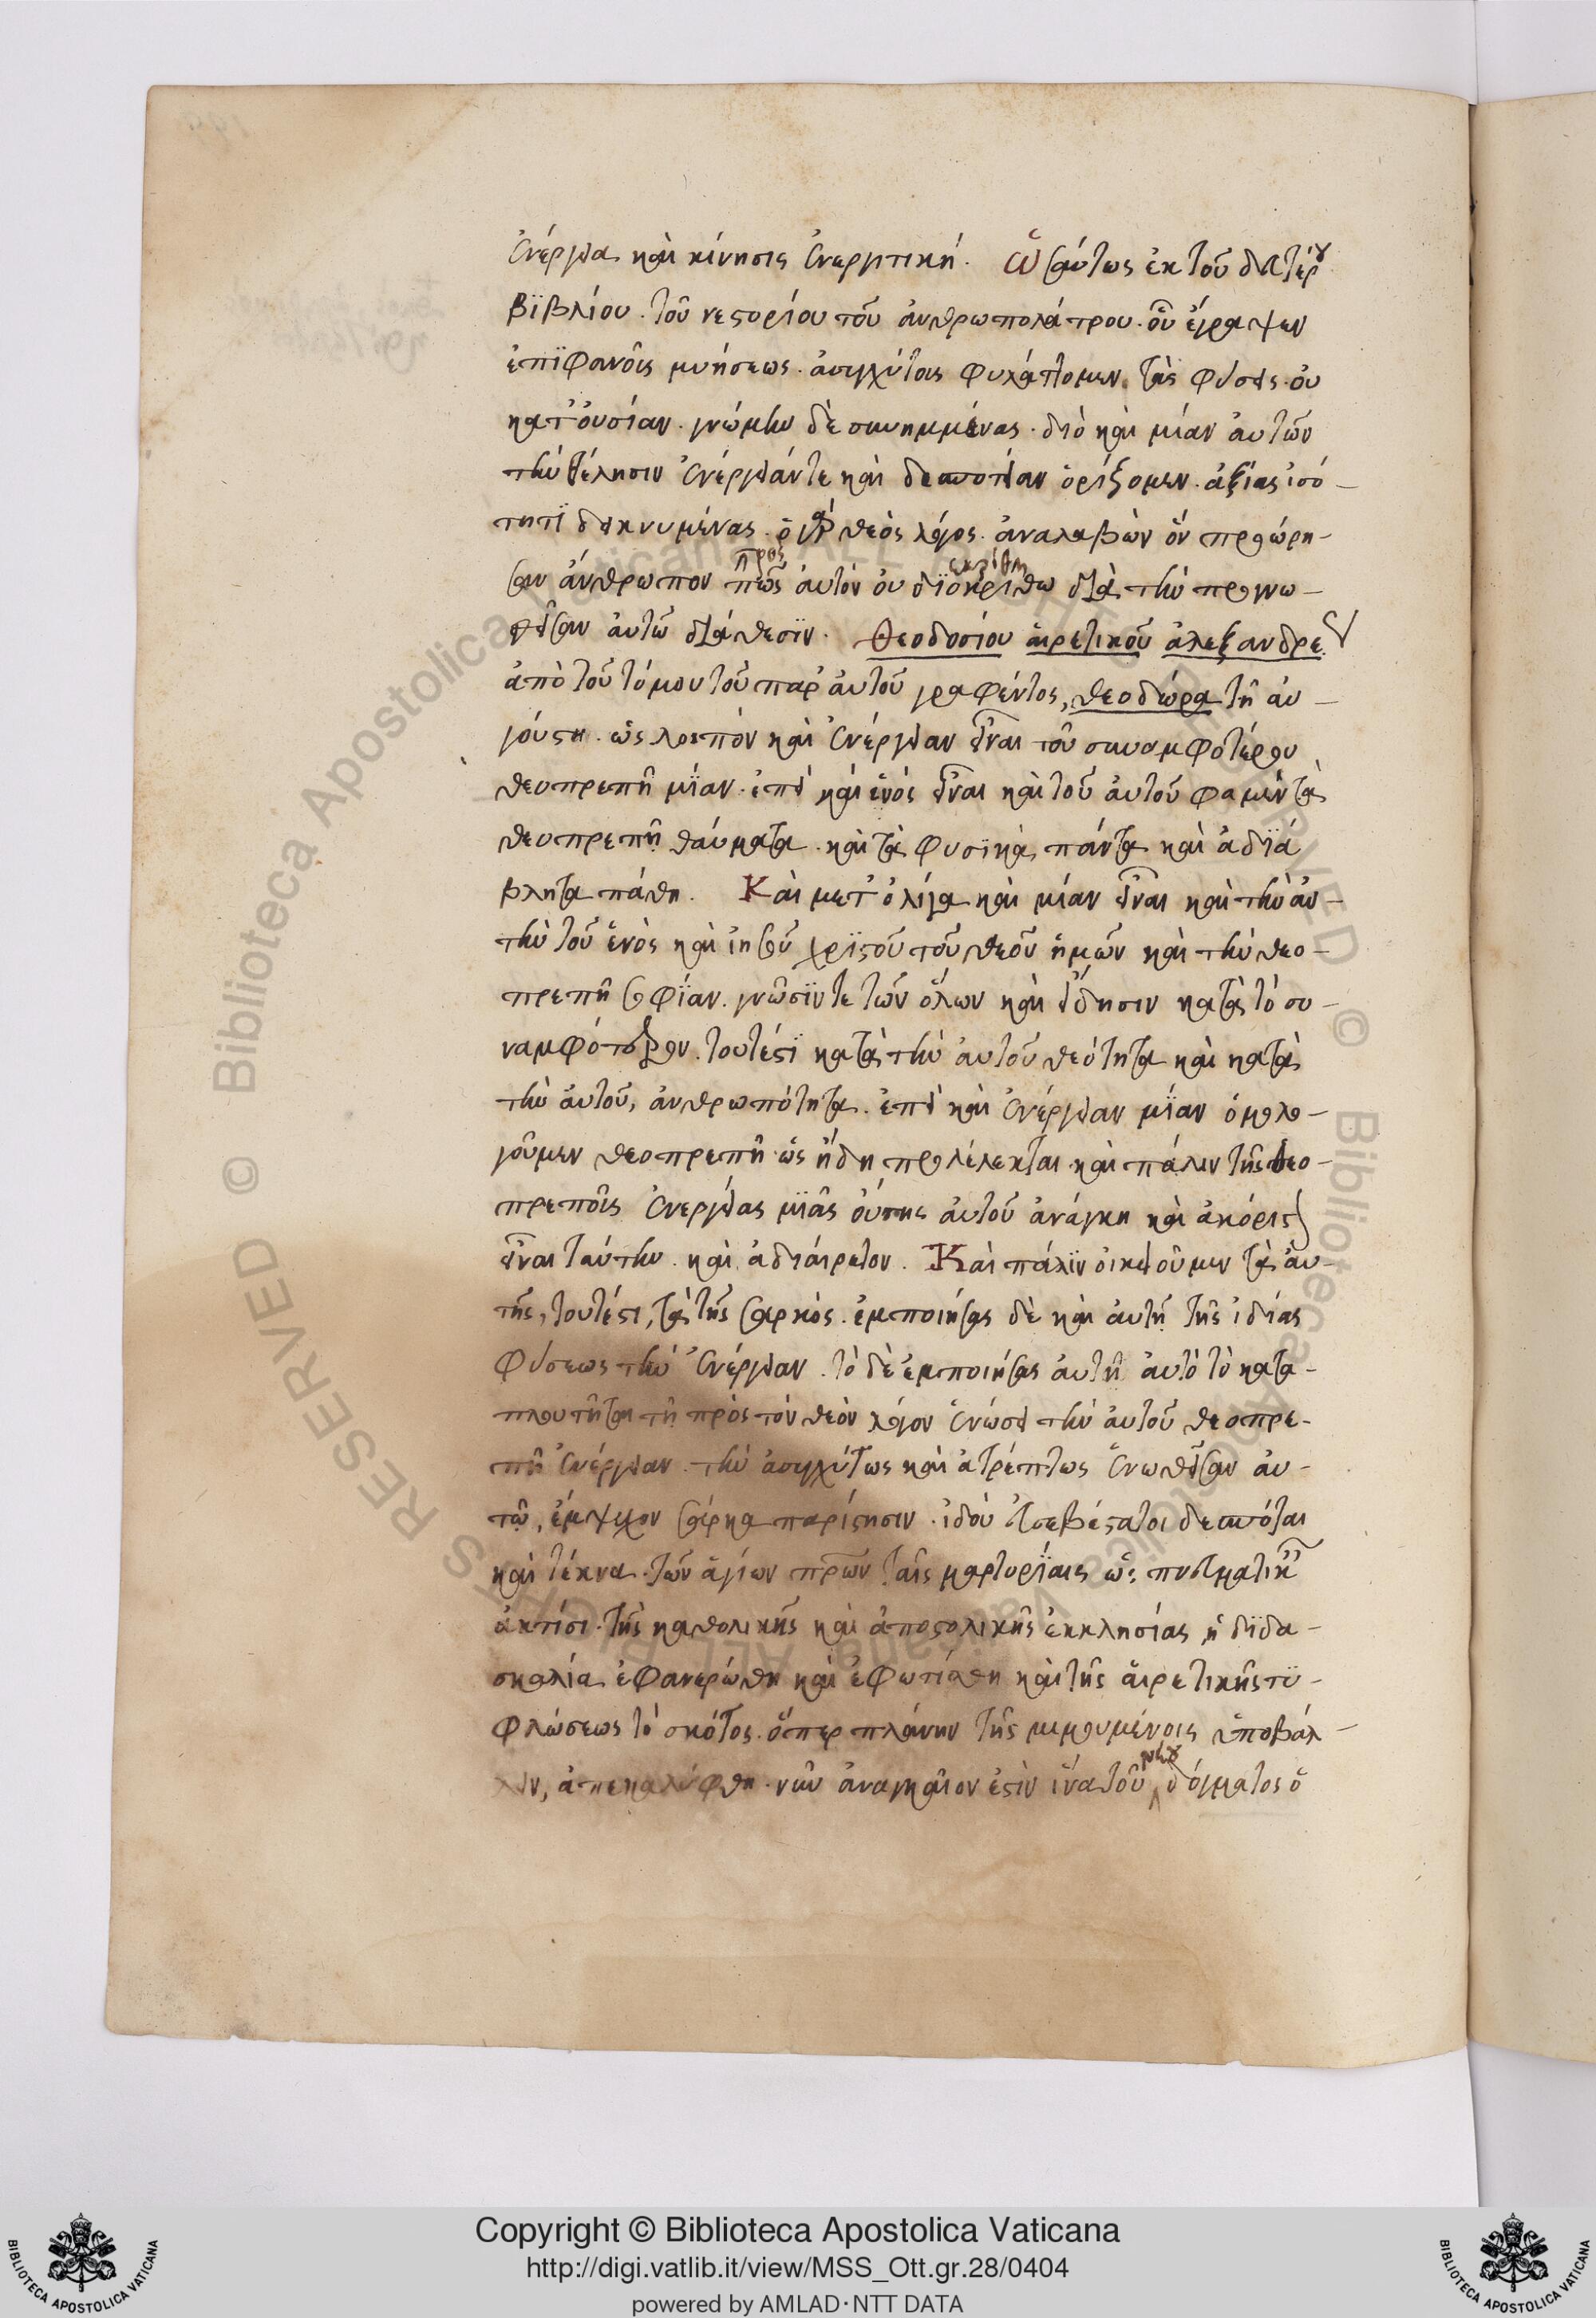 ἐνέργεια καὶ κίνησις ἐνεργητική. Ὡσαύτως ἐκ τοῦ δευτέρου
βϊβλίου. τοῦ νεστορίου τοῦ ἀνθρωπολάτρου. οὗ ἔγραψεν
ἐπϊφανοῖς μυήσεως. ἀσυγχύτοις φυλάττομεν. τὰς φύσεις. οὐ
κατ' οὐσίαν. γνώμην δὲ συνημμένας. διὸ καὶ μίαν αὐτῶν
τὴν θέλησιν ἐνέργειάν τε καὶ δεσποτείαν ὁρίζομεν. ἀξίας ἰσό-
τητϊ δεικνυμένας. ὁ γὰρ θεὸς λόγος. ἀναλαβὼν ὃν προώρη-
σαν ἄνθρωπον πῶς αὐτὸν οὐ διὰ τὴν προγνω-
πρὸς
σθεῖσαν αὐτῶ διάθεσϊν. Θεοδοσίου αἱρετικοῦ ἀλεξανδρε
ἀπὸ τοῦ τόμου τοῦ παρ' αὐτοῦ γραφέντος, θεοδώρα τῆ αὐ-
γούστη. ὡς λοιπὸν καὶ ἐνέργειαν εἶναι τοῦ συναμφοτέρου
θεοπρεπῆ μΐαν. ἐπεὶ καὶ ἑνός εἶναι καὶ τοῦ αὐτοῦ φαμὲν τὰ
θεοπρεπῆ θαύματα. καὶ τὰ φυσϊκὰ πάντα καὶ ἀδϊά
βλητα πάθη. Καὶ μετ' ὀλίγα καὶ μίαν εἶναι καὶ τὴν αὐ-
τὴν τοῦ ἑνὸς καὶ ἰησοῦ χρϊστοῦ τοῦ θεοῦ ἡμῶν καὶ τὴν θεο-
πρεπῆ σοφΐαν. γνῶσϊν τε τῶν ὅλων καὶ εἴδησιν κατὰ τὸ συ-
ναμφότερον. τουτέστϊ κατὰ τὴν αὐτοῦ θεότητα καὶ κατὰ
τὴν αὐτοῦ, ἀνθρωπότητα. ἐπεὶ καὶ ἐνέργειαν μΐαν ὁμολο-
γοῦμεν θεοπρεπῆ. ὡς ἤδη προλέλεκται. καὶ πάλιν τῆς θεο-
πρεποῖς ἐνεργείας μϊᾶς οὔσης αὐτοῦ ἀνάγκη καὶ
εἶναι ταύτην. καὶ ἀδιαίρετον. Καὶ πάλϊν οἰκειοῦμεν τὰ αὐ-
τῆς, τουτέστι, τὰ τῆς σαρκὸς. ἐμποιήσας δὲ καὶ αὐτῆ τῆς ἰδίας
φύσεως τὴν ἐνέργειαν. τὸ δὲ ἐμποιήσας αὐτῆ αὐτὸ τὸ κατα-
πλουτῆσαι τῆ πρὸς τὸν θεὸν λόγον ἑνώσει τὴν αὐτοῦ θεοπρε-
πῆ ἐνέργειαν. τὴν ἀσυγχύτως καὶ ἀτρέπτως ἑνωθεῖσαν αὐ-
τῶ, ἔμψυχον σάρκα παρίστησιν. ἰδοὺ εὐσεβέστατοι δεσπόται
καὶ τέκνα. τῶν ἁγίων πρων ταῖς μαρτυρΐαις ὡς πνευματικ
ἀκτίσι. τῆς καθολικῆς καὶ ἀποστολικῆς ἐκκλησίας, ἡ δϊδα-
σκαλία ἐφανερώθη καὶ ἐφωτίσθη καὶ τῆς αἱρετικῆς τϋ-
φλώσεως τὸ σκότος. ὅπερ πλάνην τῆς μιμουμένοις ὑποβάλ-
λειν, ἀπεκαλύφθη. νῦν ἀναγκαῖον ἐστὶν ἵνα τοῦ νέου δόγματος ὁ